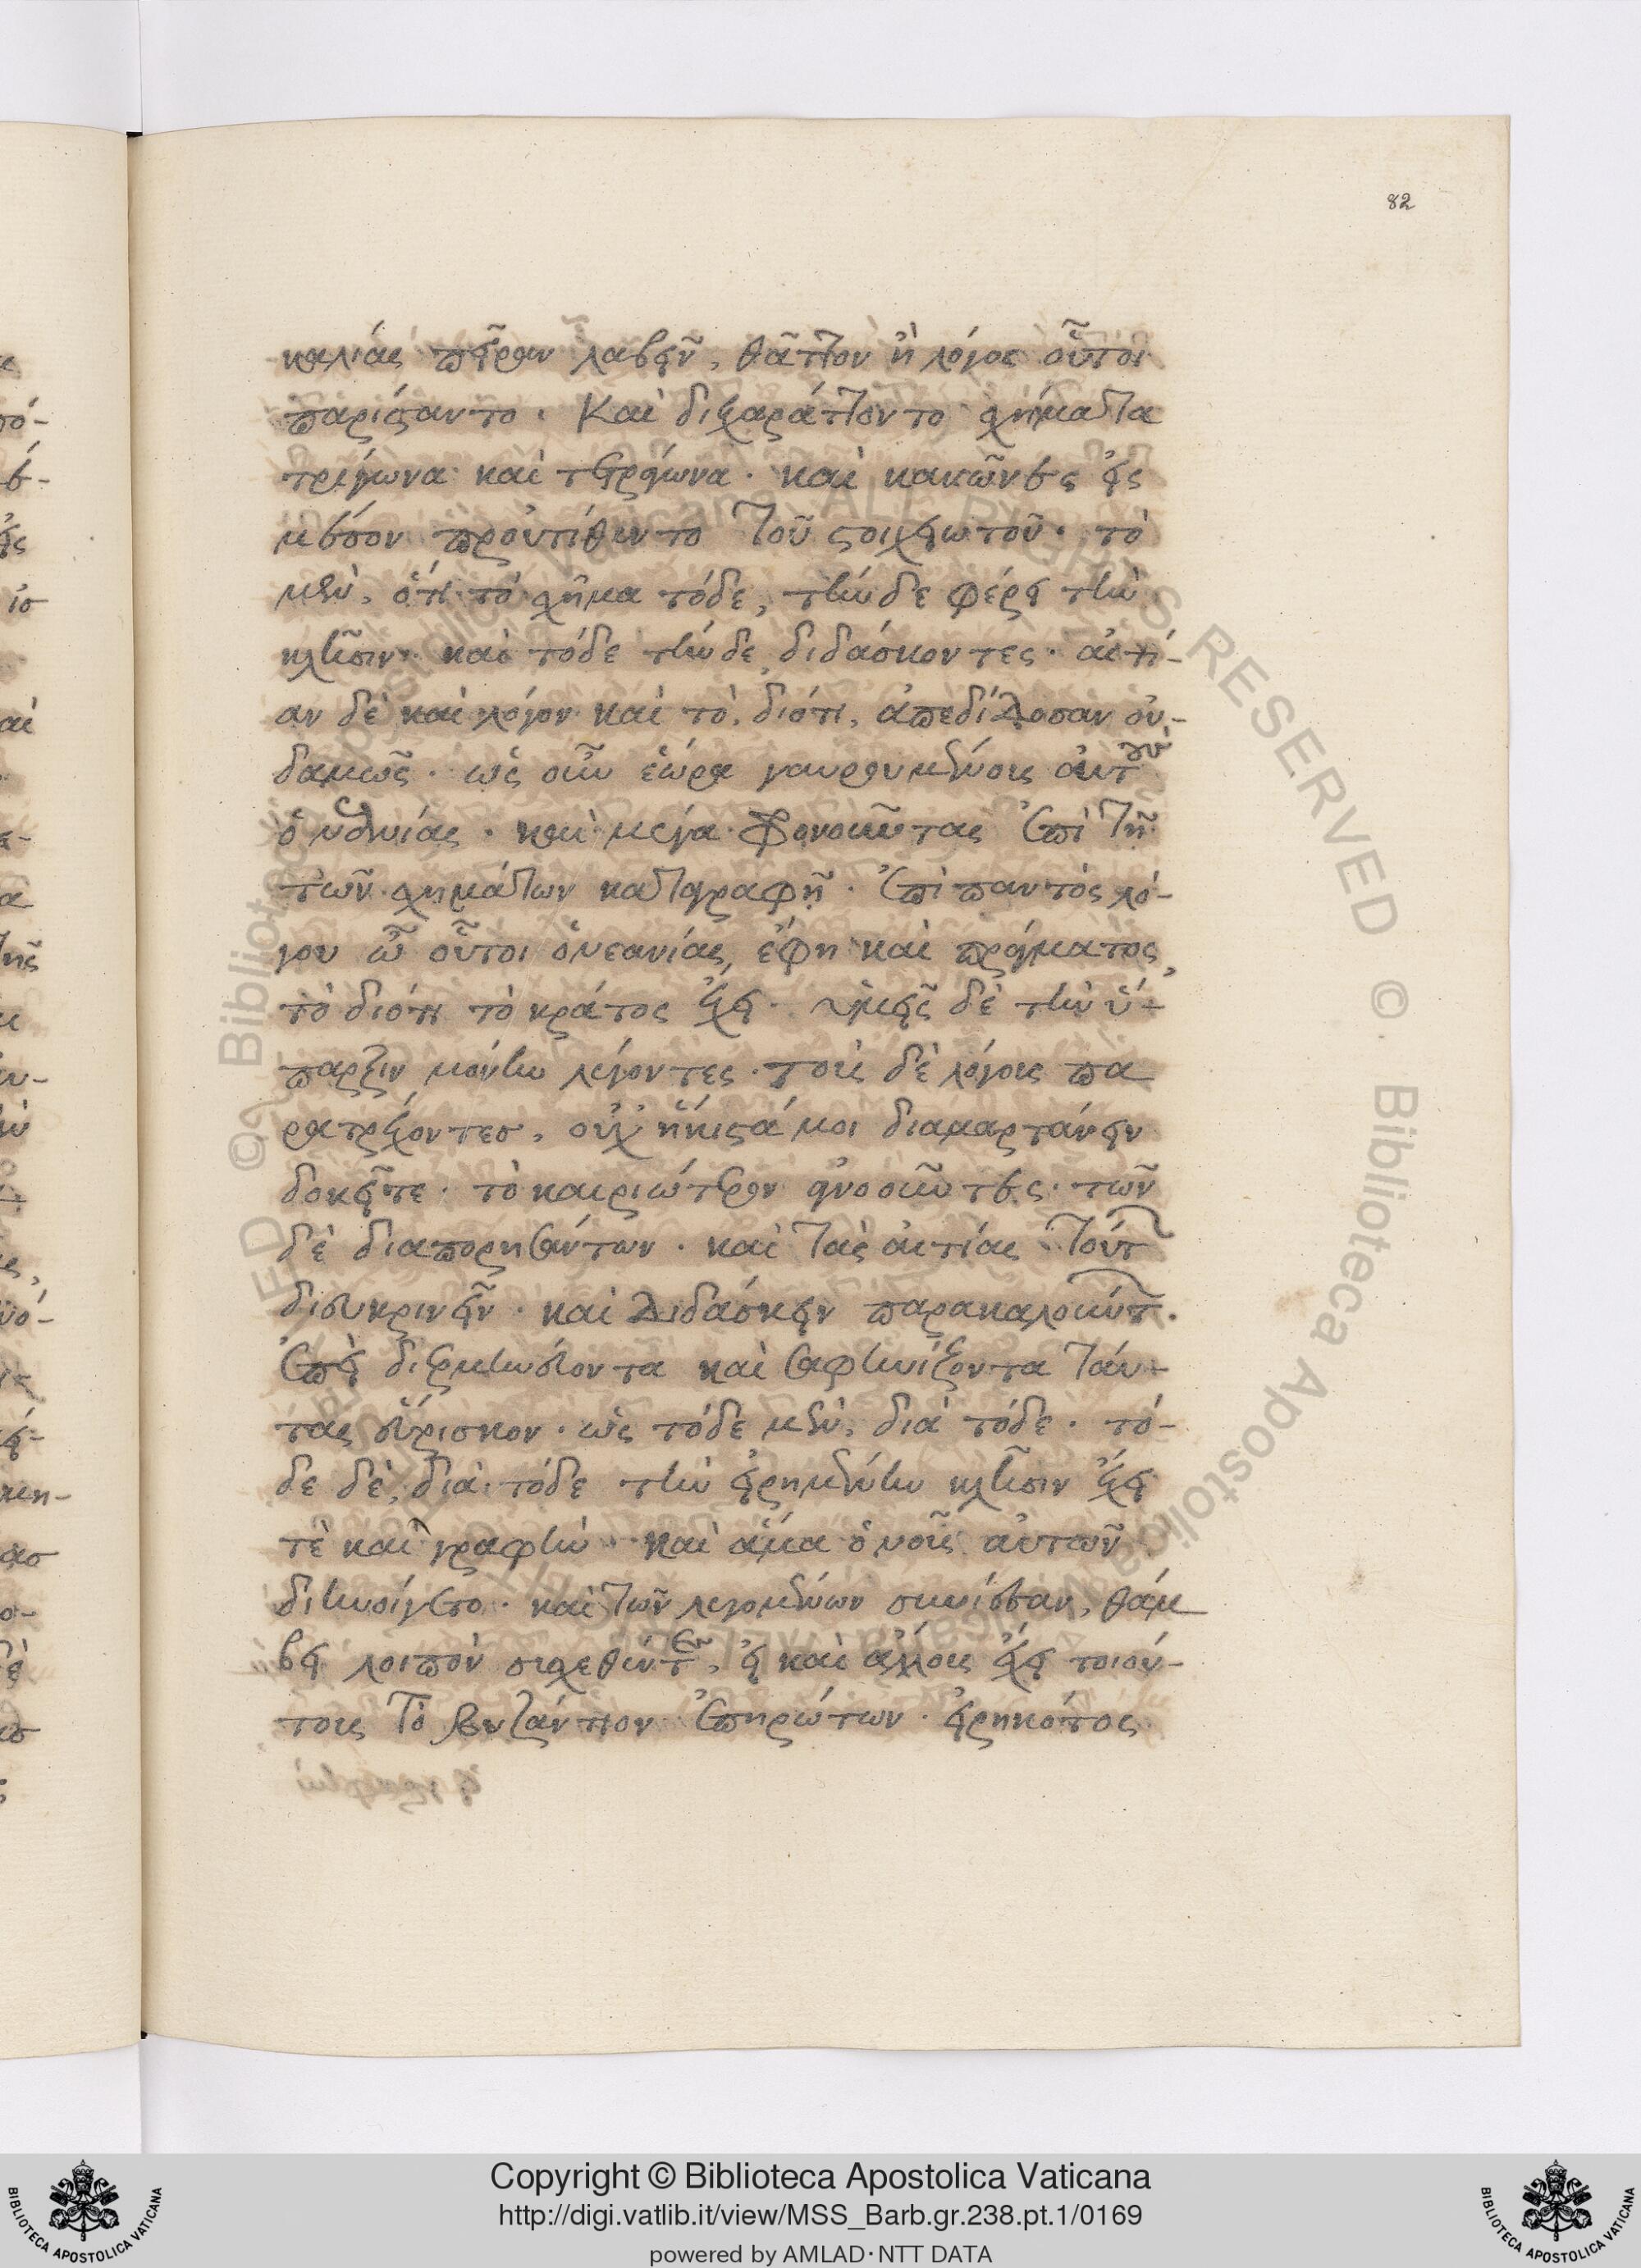 82
καλίας πεῖραν λαβεῖν, θᾶττον ἢ λόγος οὗτοι
παρίσαντο. Καὶ διεχαράττοντο σχήματα
τρίγωνα καὶ τετράγωνα. καὶ κακῶνες εἰς
μέσον προὐτίθεντο τοῦ στοιχειωτοῦ. τὸ
μὲν, ὅτι τὸ σχῆμα τόδε, τήνδε φέρει τὴν
κλῆσιν. καὶ τόδε τήνδε διδάσκοντες. αἰτί-
αν δὲ καὶ λόγον καὶ τὸ, διότι, ἀπεδίδοσαν οὐ-
δαμῶς. ὡς οὖν ἑώρα γαυρουμένους αὐτοὺς
ὁ νεανίας. καὶ μέγα φρονοῦντας ἐπὶ τῇ
τῶν σχημάτων καταγραφῇ. ἐπὶ παντὸς λό-
γου ὦ οὗτοι ὁ νεανίας, ἔφη καὶ πράγματος,
τὸ διότι τὸ κράτος ἔχει. ὑμεῖς δὲ τὴν ὕ-
παρξιν μόνην λέγοντες. τοὺς δὲ λόγους πα
ρατρέχοντες, οὐχ ἥκιστά μοι διαμαρτάνειν
δοκεῖτε. τὸ καιριώτερον ἀγνοοῦντες. τῶν
δὲ διαπορησάντων. καὶ τὰς αἰτίας τούτων
διευκρινεῖν. καὶ διδάσκειν παρακαλούντων.
ἐπεὶ διερμηνεύοντα καὶ σαφηνίζοντα πάν-
τας εὕρισκον. ὡς τόδε μὲν, διὰ τόδε. τό-
δε δὲ, διὰ τόδε τὴν εἰρημένην κλῆσιν ἔχει
τὲ καὶ γραφήν. καὶ ἅμα ὁ νοῦς αὐτῶν
διηνοίγετο. καὶ τῶν λεγομένων συνίεσαν, θάμ
βει λοιπὸν συσχεθέντες, εἰ καὶ ἄλλους ἔχει τοιού-
τους τὸ βυζάντιον ἐπηρώτων. εἰρηκότος
Copyright © Biblioteca Apostolica Vaticana
http://digi.vatlib.it/view/MSS_Barb.gr.238.pt.1/0169
powered by AMLAD·NTT DATA
BIBLIOTECA APOSTOLICA VATICANA
BIBLIOTECA APOSTOLICA VATICANA